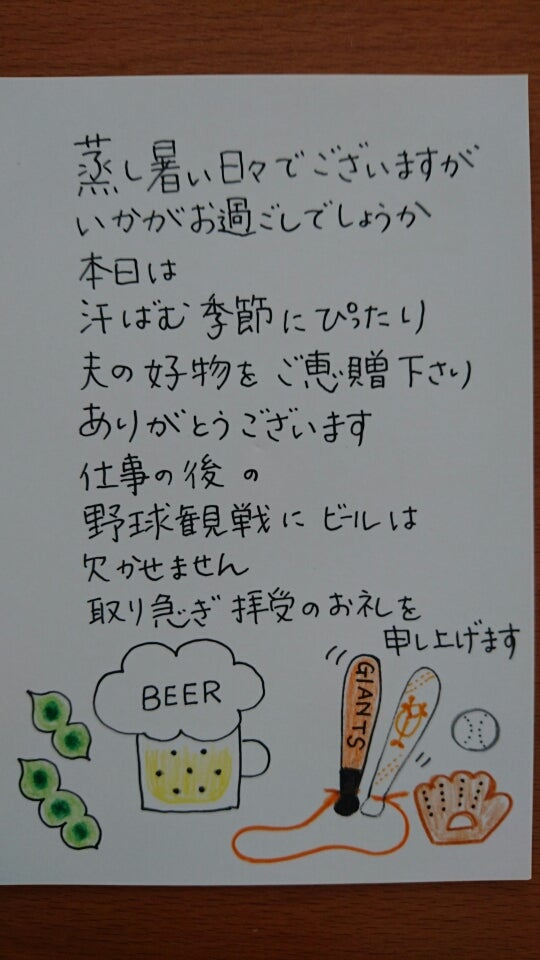 蒸し暑い日々でございますが
いかがお過ごしでしょうか
本日は
汗ばむ季節にぴったり
夫の好物をご恵贈下さり
ありがとうございます
仕事の後の
野球観戦にビールは
欠かせません
取り急ぎ拝受のお礼を
申し上げます
BEER
GIANTS